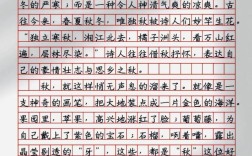 冬的严寒；而是一种令人神清气爽的凉爽。古
往今来，春夏秋冬，唯独秋被诗人们妙笔生花。
“独立寒秋，湘江北去，橘子洲头，看万山红
遍，层林尽染。”诗人往往借秋抒怀，表达自
己的豪情壮志与思乡之秋。
秋，就这样悄无声息的溜来了。就像是一
支神奇的画笔，把大地装点成一片金色的海洋。
果园里，苹果，高兴地涨红了脸；葡萄藤，为
自己戴上了紫色的宝石；石榴，咧着嘴，露出
晶莹剔透的“牙”，这些，都是